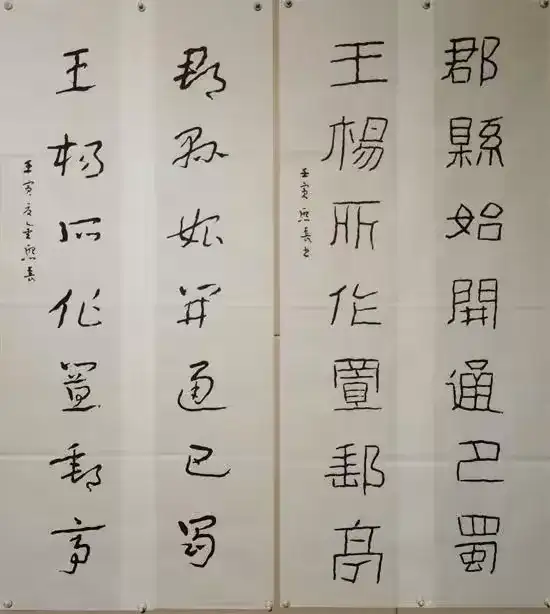 郡縣始開通巴蜀
王楊所作置郵亭
壬寅熙長書
郡縣始開通巴蜀
王楊所作置郵亭
壬寅夏金熙長